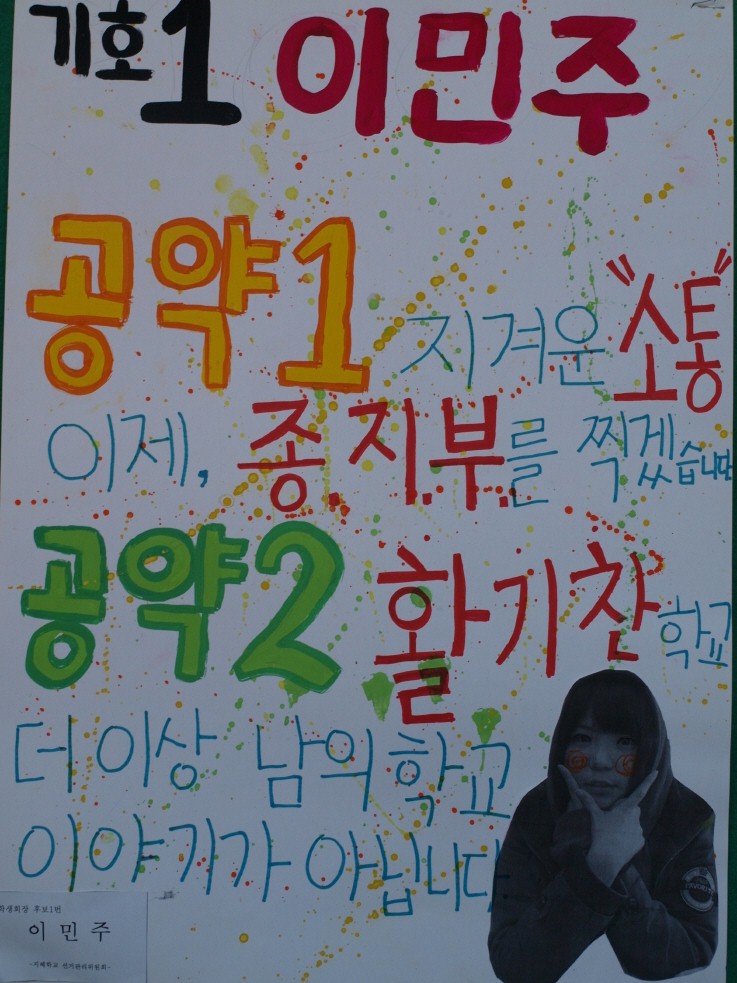 기호1 이민주
공약1 지겨운 "소통"
이제, 종.지.부.를 찍겠습니다
공약2 활기찬 학교
더 이상 남의 학교
이야기가 아닙니다.
학생회장 후보1번
이 민 주